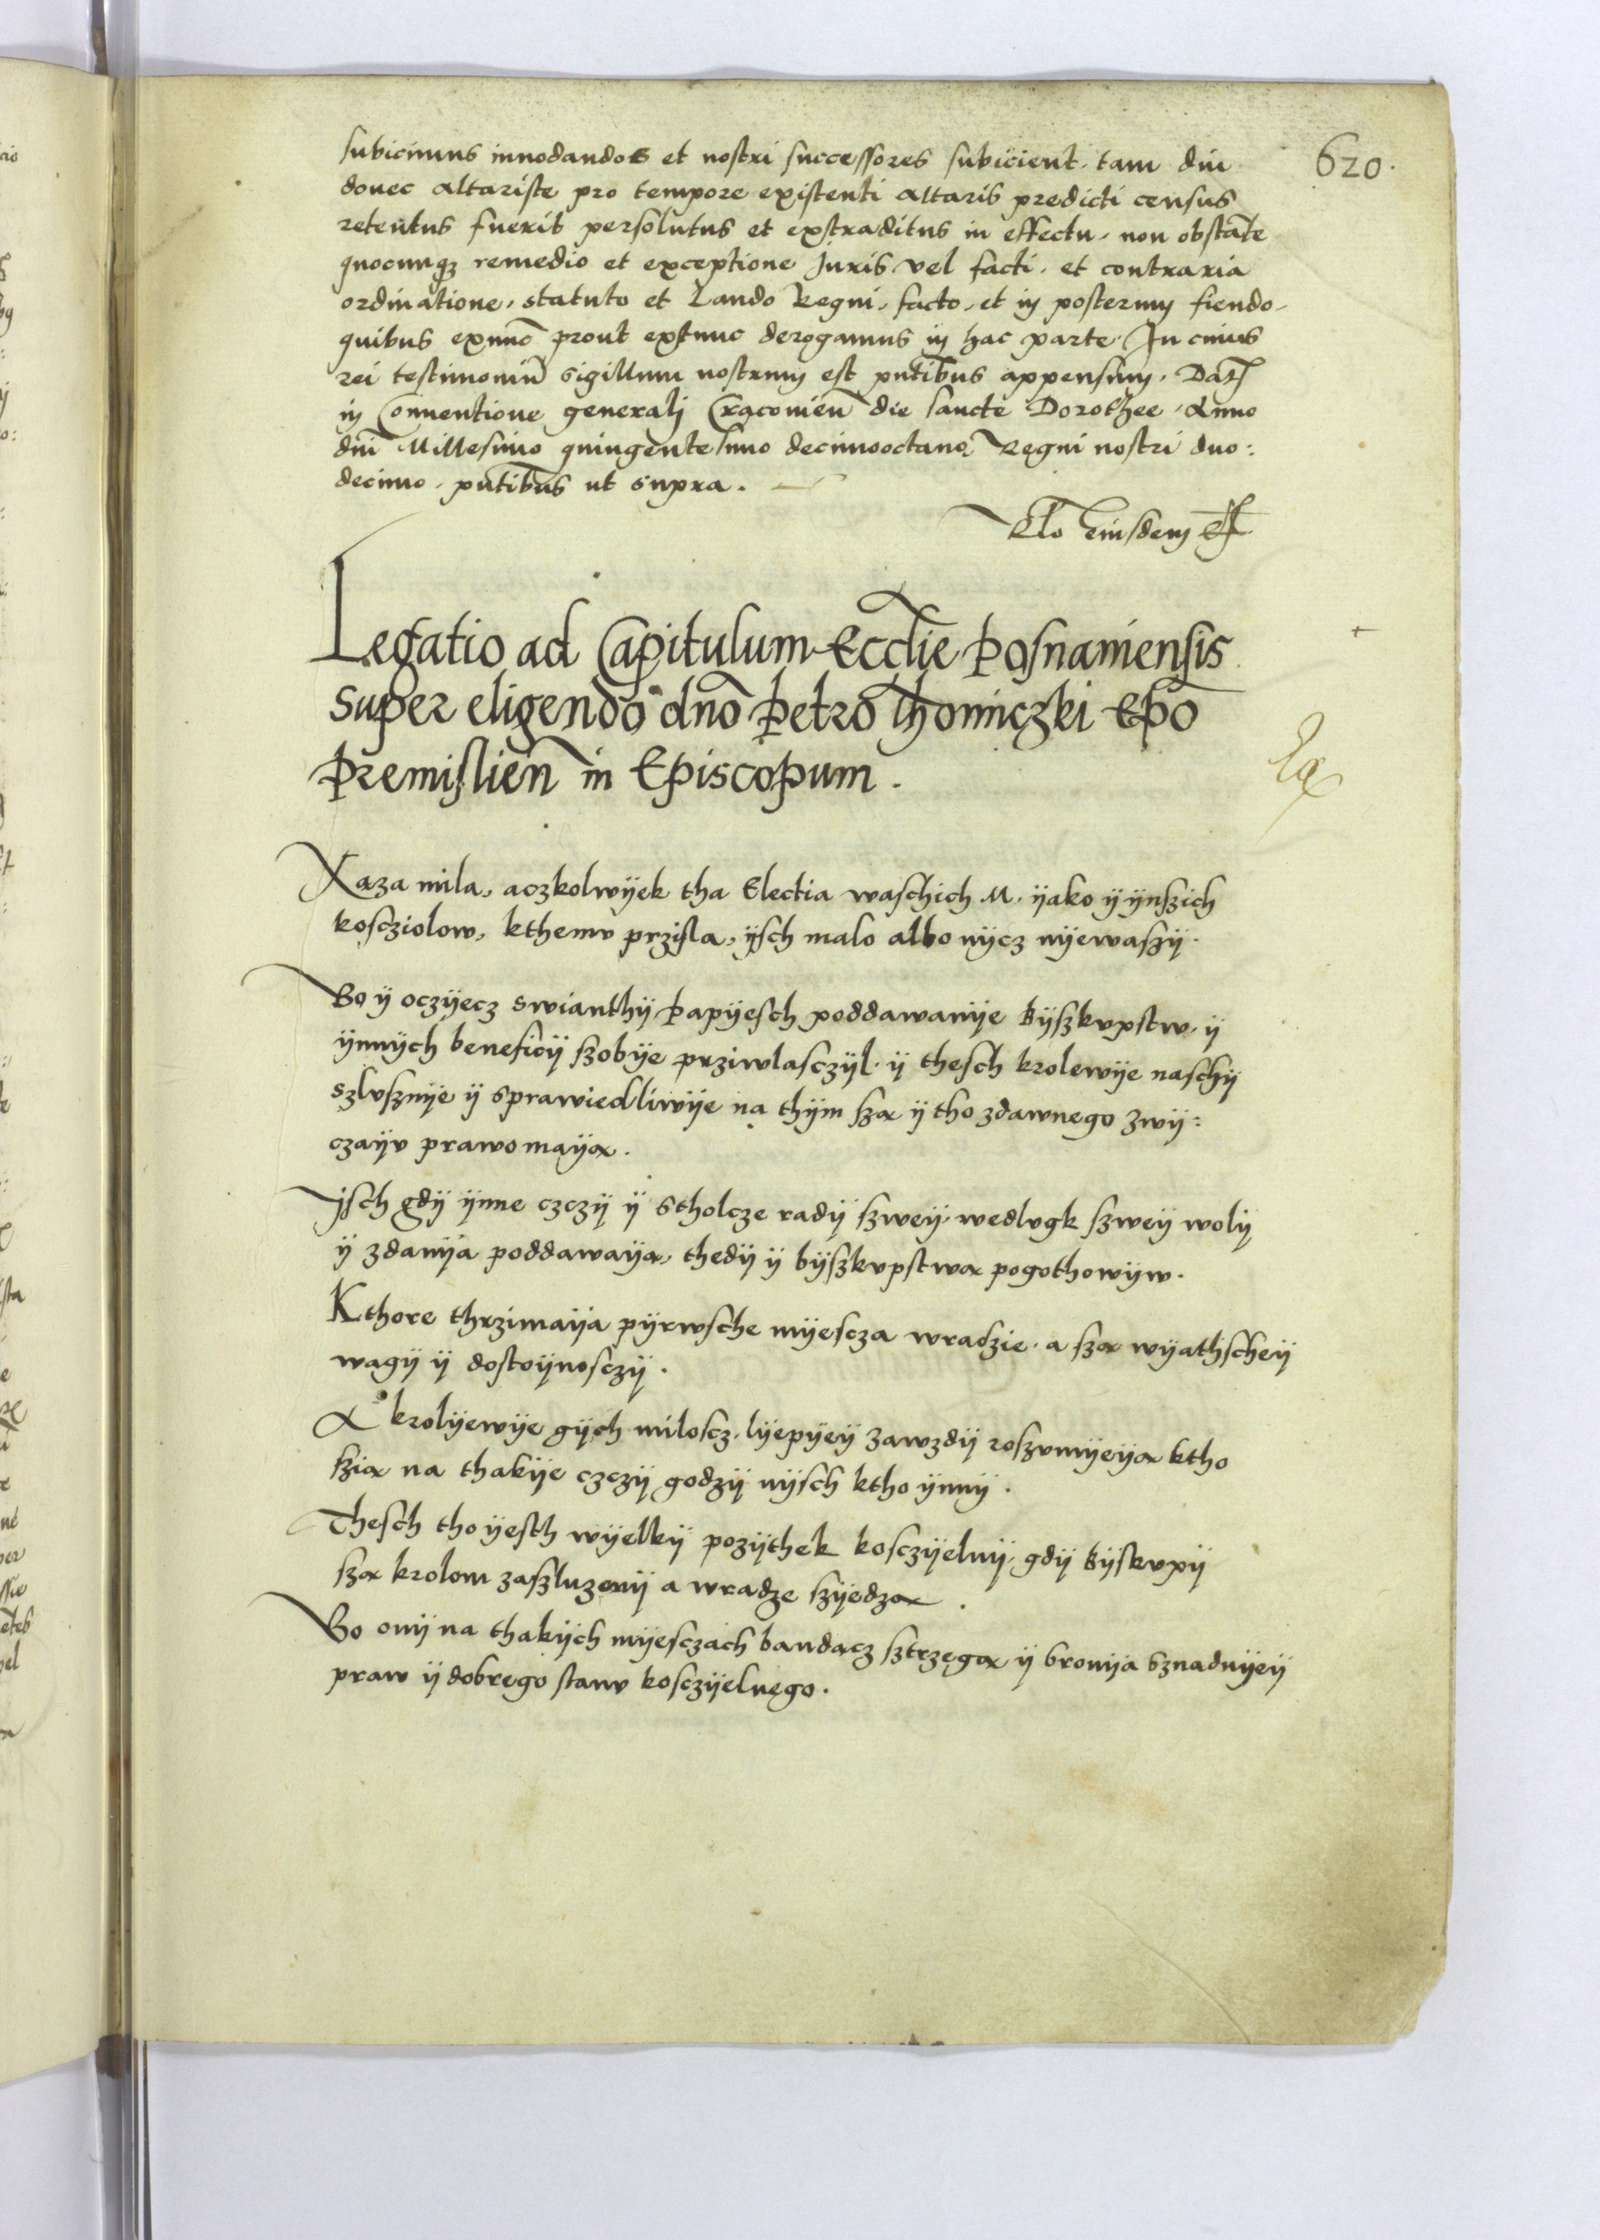 620.
subicimus innodandos et nostri successores subicient. tam diu
donec altariste pro tempore existenti altaris predicti census
retentus fuerit persolutus et extraditus in effectu. non obstāte
quocunqz remedio et exceptione juris vel facti. et contraria
ordinatione, statuto et Laudo Regni, facto, et in posterum fiendo.
quibus exnūc prout extunc derogamus in hac parte. In cuius
rei testimoniū sigillum nostrum est pn̄tibus appensum. Dat
in Conuentione generalj Cracouien̄ die sancte Dorothee. Anno
dn̄i Millesimo quingentesimo decimooctauo. Regni nostri duo:
decimo. pn̄tibus ut supra.
Rlo eiusdem
Legatio ad Capitulum Eccl̄ie Posnaniensis
super eligendo dn̄o Petro Thomiczki Ep̄o
Premislien̄ in Episcopum.
Xaza mila, aczkolwÿek tha Electia waschich M. ÿako ÿ ÿnszich
kosciolow, kthemv przisla, ÿsch malo albo nÿcz nÿewaszÿ.
Bo ÿ oczÿecz swianthÿ Papÿesch poddawanÿe Bÿszkvpstw. ÿ
ÿnnÿch beneficÿ szobÿe prziwlasczÿl. ÿ thesch krolewÿe naschÿ
szlvsznÿe ÿ sprawiedliwÿe na thÿm sza ÿ tho zdawnego zwÿ:
czaÿv prawo maÿa.
Jsch gdÿ ÿnne czczÿ ÿ stholcze radÿ szweÿ. wedlvgk szweÿ wolÿ
ÿ zdanÿa poddawaÿa, thedÿ ÿ bÿszkvpstwa pogothowÿw.
Kthore thrzimaÿa pÿrwsche mÿescza wradzie. a sza wÿathscheÿ
wagÿ ÿ dostoÿnosczÿ.
A krolÿewÿe gÿch miloscz. lÿepÿeÿ zawzdÿ roszvmÿeÿa ktho
szia na thakÿe czczÿ godzÿ nÿsch ktho ÿnnÿ.
Thesch tho ÿesth wÿelkÿ pozÿthek kosczÿelnÿ. gdÿ Bÿskvpÿ
sza krolom zaszluzenÿ a wradze szÿedza.
Bo onÿ na thakÿch mÿesczach bandacz sztrzega ÿ bronÿa sznadnÿeÿ
praw ÿ dobrego stanv kosczÿelnego.